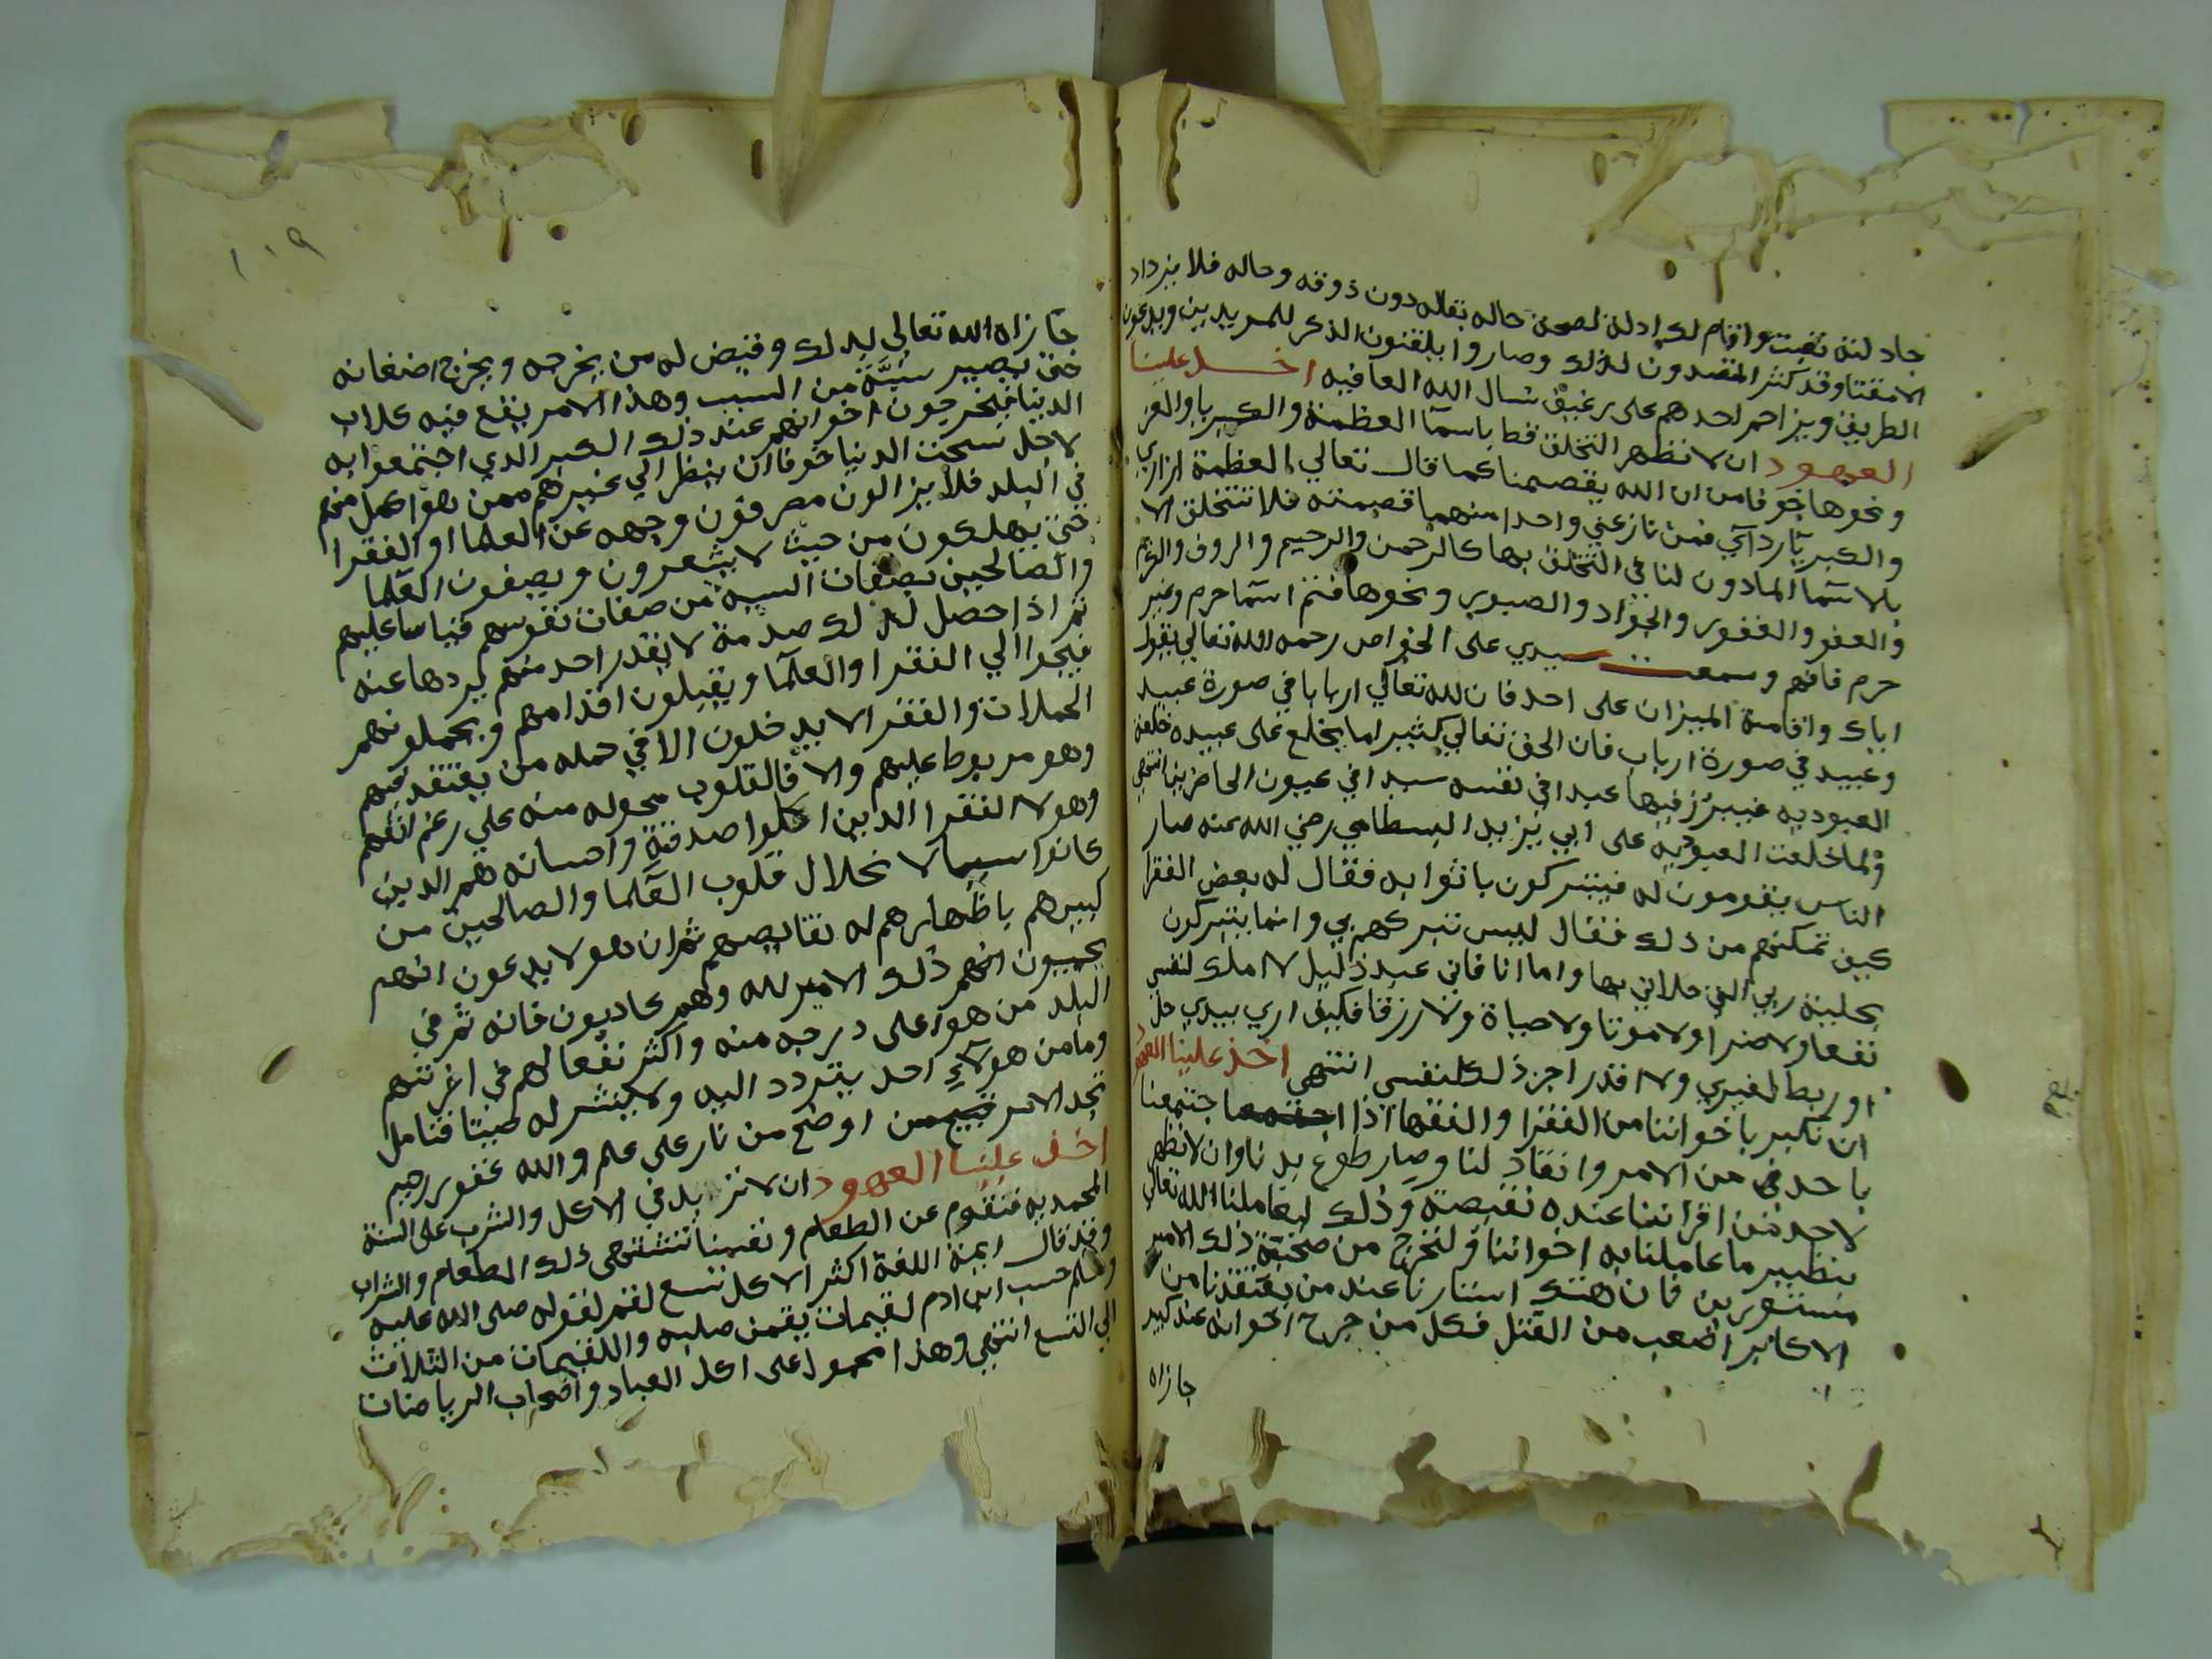 جادلنه تفت واقام لك ادلة لصحة حاله بقاله دون ذوقه وحاله فلا يزداد
الا مقتا وقد كثر المتصدون لذلك وصاروا يلقنون الذكر للمريدين ويدعون
الطريق ويزاحم احدهم على رغيف نسال الله العافيه اخـــذ علينا
العهود ان لا نظهر التخلق قط باسمآ العظمة والكبريا والعز
ونحوها خوفا من ان الله يقصمنا كما قال تعالي العظمة ازاري
والكبريآ ردآي فمن نازعني واحدا منهما قصمته فلا نتخلق الا
بالاسمآ الماذون لنا في التخلق بها كالرحمن والرحيم والروف والكريم
والعفو والغفور والجواد والصبور ونحوها فثم اسمآ حرم وغير
حرم فافهم وسمعت سيدي على الخواص رحمه الله تعالي يقول
اياك واقامة الميزان على احد فان لله تعالي اربابا في صورة عبيد
وعبيد في صورة ارباب فان الحق تعالي كثيرا ما يخلع على عبيده خلعة
العبوديه فيبرز فيها عبدا في نفسه سيدا في عيون الحاضرين انتهي
ولما خلعت العبوديه على ابي يزيد البسطامي رضي الله عنه صار
الناس يقومون له فيتبركون باثوابه فقال له بعض الفقرا
كيف تمكنهم من ذلك فقال ليس تبركهم بي وانما يتبركون
بحلية ربي التي حلاني بها واما انا فاني عبد ذليل لا املك لنفسي
نفعا ولا ضرا ولا موتا ولا حياة ولا رزقا فكيف اري بيدي حل
او ربط لغيري ولا اقدر اجز ذلك لنفسي انتهي اخذ علينا العهود
ان نكبر باخواننا من الفقرا والفقها اذا اجتمعنا
باحد من الامر وانقاد لنا وصار طوع يدنا وان لا نظهر
لاحد من اقراننا عنده نقيصة وذلك ليعاملنا الله تعالي
بنظير ما عاملنا به اخواننا ولنخرج من صحبة ذلك الامير
مستورين فان هتك استارنا عند من يعتقدنا من
الاكابر اصعب من القتل فكل من جرح اخوانه عند كبير
جازاه
١١٩
جازاه الله تعالي بذلك وقيض له من يجرحه ويخرج اضغانه
حتى يصير سبة من السبب وهذا الامر يقع فيه كلاب
الدنيا فيجرحون اخوانهم عند ذلك الكبير الذي اجتمعوا به
لاجل سحت الدنيا خوفا ان ينظر الي غيرهم ممن هو اكمل منهم
في البلد فلا يزالون يصرفون وجهه عن العلما او الفقرا
حتى يهلكون من حيث لا يشعرون ويصفون العلما
والصالحين بصفات السيه من صفات نفوسهم قياسا عليهم
ثم اذا حصل لذلك صدمة لا يقدر احد منهم يردها عنه
فيجوا الي الفقرا والعلمآ ويقبلون اقدامهم ويحملونهم
الحملات والفقرا لا يدخلون الا في حمله من يعتقد فيهم
وهو مربوط عليهم والا فالقلوب محوله منه علي رغم انفهم
وهولا الفقرا الذين اكلوا صدقته واحسانه هم الذين
كانوا سببا لانحلال قلوب العلما والصالحين من
كبيرهم باظهارهم له نقايصهم ثم ان هولا يدعون انهم
يحبون ذلك الامير لله وهم كاذبون فانه ثم في
البلد من هو اعلى درجه منه واكثر نفعا لهم في اخرتهم
وما من هولآء احد يتردد اليه ولا ينشر له صيتا فتامل
تجد الامر اوضح من نار على علم والله غفور رحيم
اخـذ علينا العهود ان لا نزيد في الاكل والشرب على السنة
المحمديه فنقوم عن الطعام ونفسنا تشتهي ذلك الطعام والشراب
وقد قال ايمة اللغة اكثر الاكل تسع لقم لقوله صلى الله عليه
وسلم حسب ابن ادم لقيمات يقمن صلبه واللقيمات من الثلاث
الي التسع انتهي وهذا محمول على اكل العباد واصحاب الرياضات